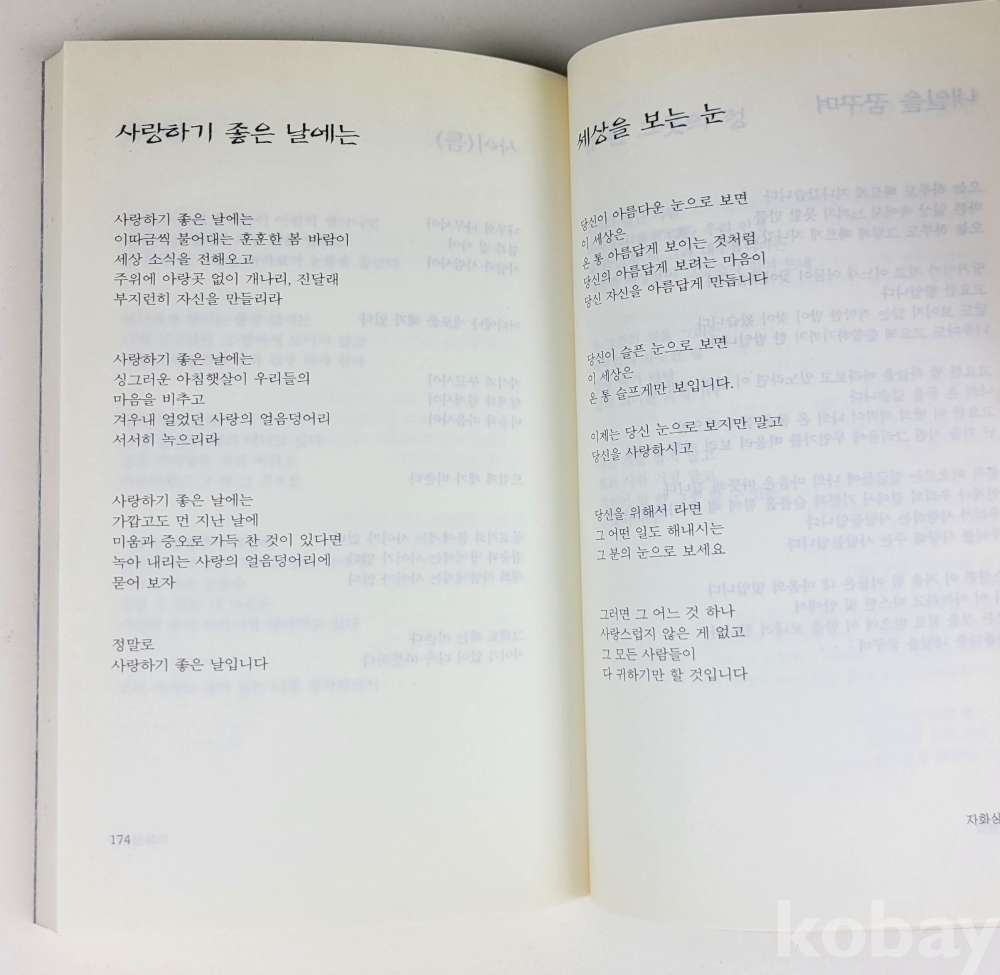 사랑하기 좋은 날에는
사랑하기 좋은 날에는
이따금씩 불어대는 훈훈한 봄 바람이
세상 소식을 전해오고
주위에 아랑곳 없이 개나리, 진달래
부지런히 자신을 만들리라
사랑하기 좋은 날에는
싱그러운 아침햇살이 우리들의
마음을 비추고
겨우내 얼었던 사랑의 얼음덩어리
서서히 녹으리라
사랑하기 좋은 날에는
가깝고도 먼 지난 날에
미움과 증오로 가득 찬 것이 있다면
녹아 내리는 사랑의 얼음덩어리에
묻어 보자
정말로
사랑하기 좋은 날입니다
174
세상을 보는 눈
당신이 아름다운 눈으로 보면
이 세상은
온 통 아름답게 보이는 것처럼
당신의 아름답게 보려는 마음이
당신 자신을 아름답게 만듭니다
당신이 슬픈 눈으로 보면
이 세상은
온 통 슬프게만 보입니다.
이제는 당신 눈으로 보지만 말고
당신을 사랑하시고
당신을 위해서 라면
그 어떤 일도 해내시는
그 분의 눈으로 보세요
그러면 그 어느 것 하나
사랑스럽지 않은 게 없고
그 모든 사람들이
다 귀하기만 할 것입니다
자화상
kobay